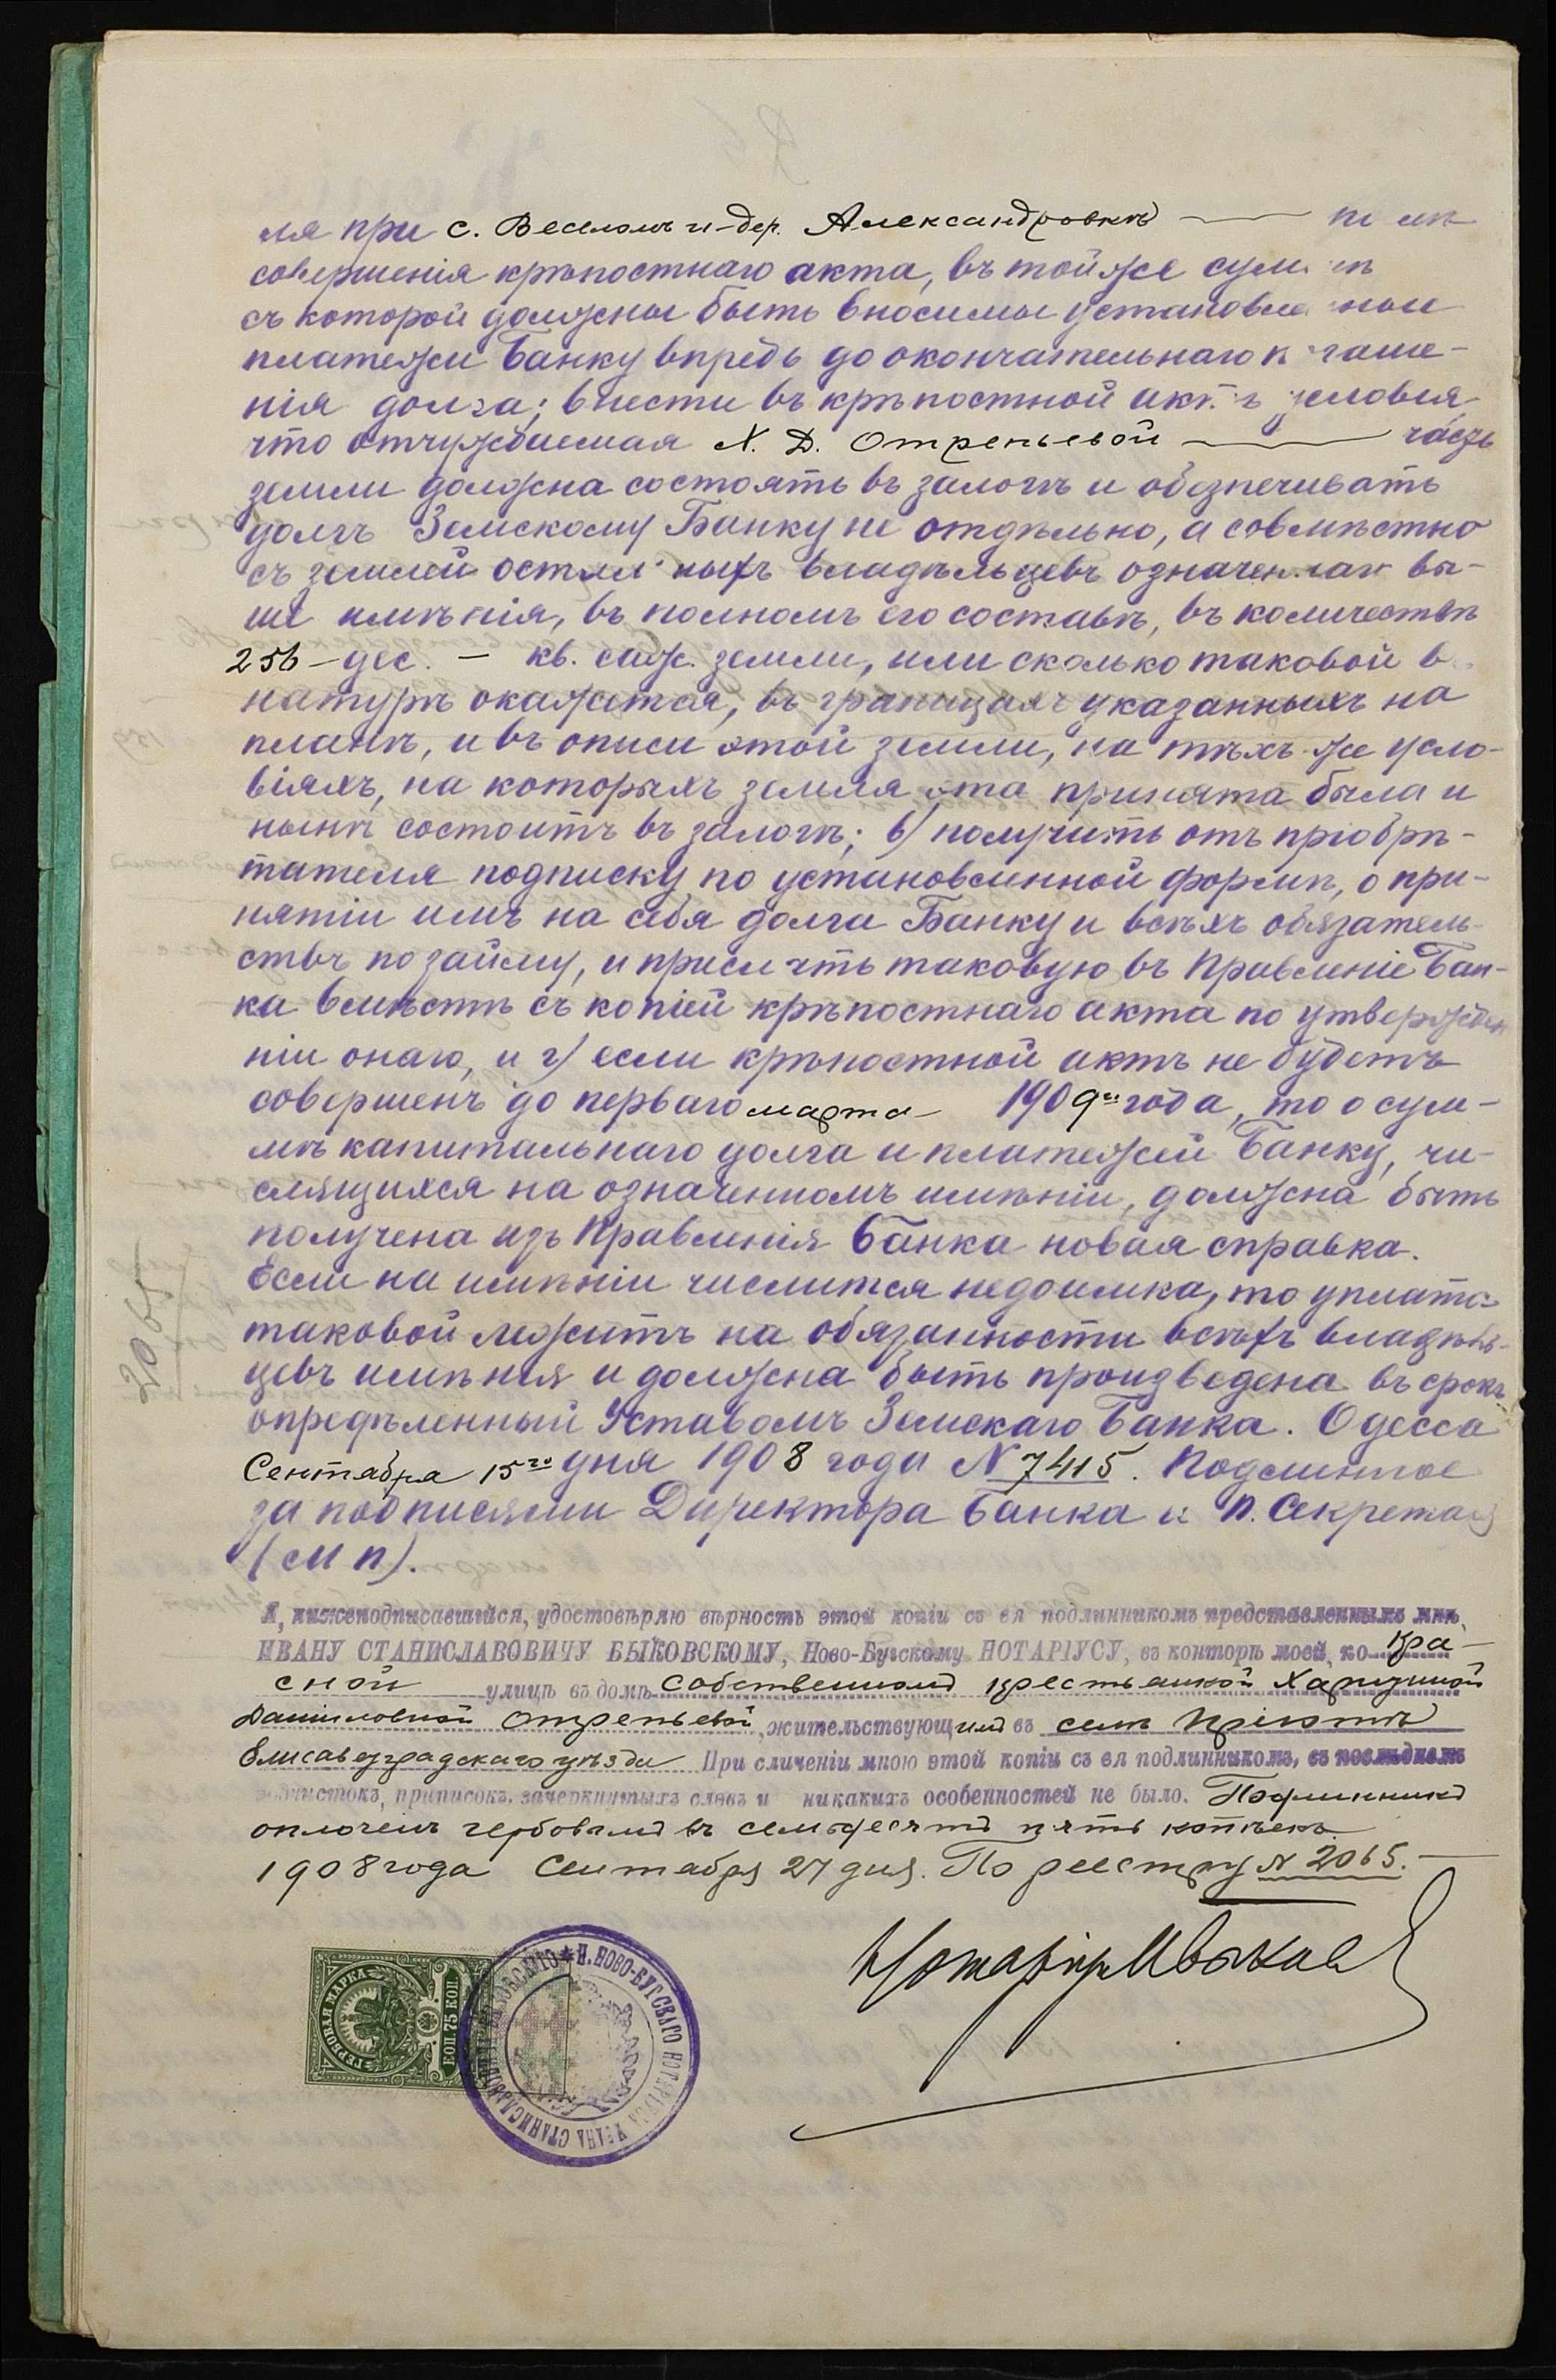 ля при с. Веселомъ и дер. Александровкѣ — послѣ
совершенія крѣпостнаго акта, въ той же суммѣ
съ которой должны быть вносимы установленные
платежи Банку впредь до окончательнаго погаше-
нія долга; внести въ крѣпостной актъ условія
что отчуждаемая Х. Д. Отреньевой — часть
земли должна состоять въ залогѣ и обезпечивать
долгъ Земскому Банку не отдѣльно, а совмѣстно
съ землей остальныхъ владѣльцевъ означеннаго вы-
ше имѣнія, въ полномъ его составѣ, въ количествѣ
256 – дес. – кв. саж. земли, или сколько таковой въ
натурѣ окажется, въ границахъ указанныхъ на
планѣ, и въ описи этой земли, на тѣхъ же усло-
віяхъ, на которыхъ земля эта принята была и
нынѣ состоитъ въ залогѣ; в) получить отъ пріобрѣ-
тателя подписку по установленной формѣ, о при-
нятіи имъ на себя долга Банку и всѣхъ обязатель-
ствъ по займу, и прислать таковую въ Правленіе Бан-
ка вмѣстѣ съ копіей крѣпостнаго акта по утвержде-
ніи онаго, и г) если крѣпостной актъ не будетъ
совершенъ до перваго марта 1909го года, то о сум-
мѣ капитальнаго долга и платежей Банку, чи-
слящихся на означенномъ имѣніи, должна быть
получена изъ Правленія Банка новая справка.
Если на имѣніи числится недоимка, то уплата
таковой лежитъ на обязанности всѣхъ владѣль-
цевъ имѣнія и должна быть произведена въ срокъ
опредѣленный Уставомъ Земскаго Банка. Одесса
Сентября 15го дня 1908 года № 7415. Подлинное
за подписями Директора Банка и П. Секретаря
(М П).
2065
Я, нижеподписавшійся, удостовѣряю вѣрность этой копіи съ ея подлинникомъ представленнымъ мнѣ,
ИВАНУ СТАНИСЛАВОВИЧУ БЫКОВСКОМУ, Ново-Бугскому НОТАРІУСУ, въ конторѣ моей, по Кра-
сной улицѣ въ домѣ собственномъ крестьянкой Харитиной
Даниловной Отреньевой, жительствующимъ въ селѣ Пріютѣ
Елисаветградскаго уѣзда При сличеніи мною этой копіи съ ея подлинникомъ, въ послѣднемъ
подчистокъ, приписокъ, зачеркнутыхъ словъ и никакихъ особенностей не было. Подлинникъ
оплоченъ гербовымъ въ семьдесятъ пять копѣекъ
1908 года Сентября 27 дня. По реестру № 2065.
Нотаріусъ И Быков
ГЕРБОВАЯ МАРКА
КОП. 75 КОП.
Н. НОВО-БУГСКАГО НОТАРІУСА ИВАНА СТАНИСЛАВОВИЧА БЫКОВСКАГО